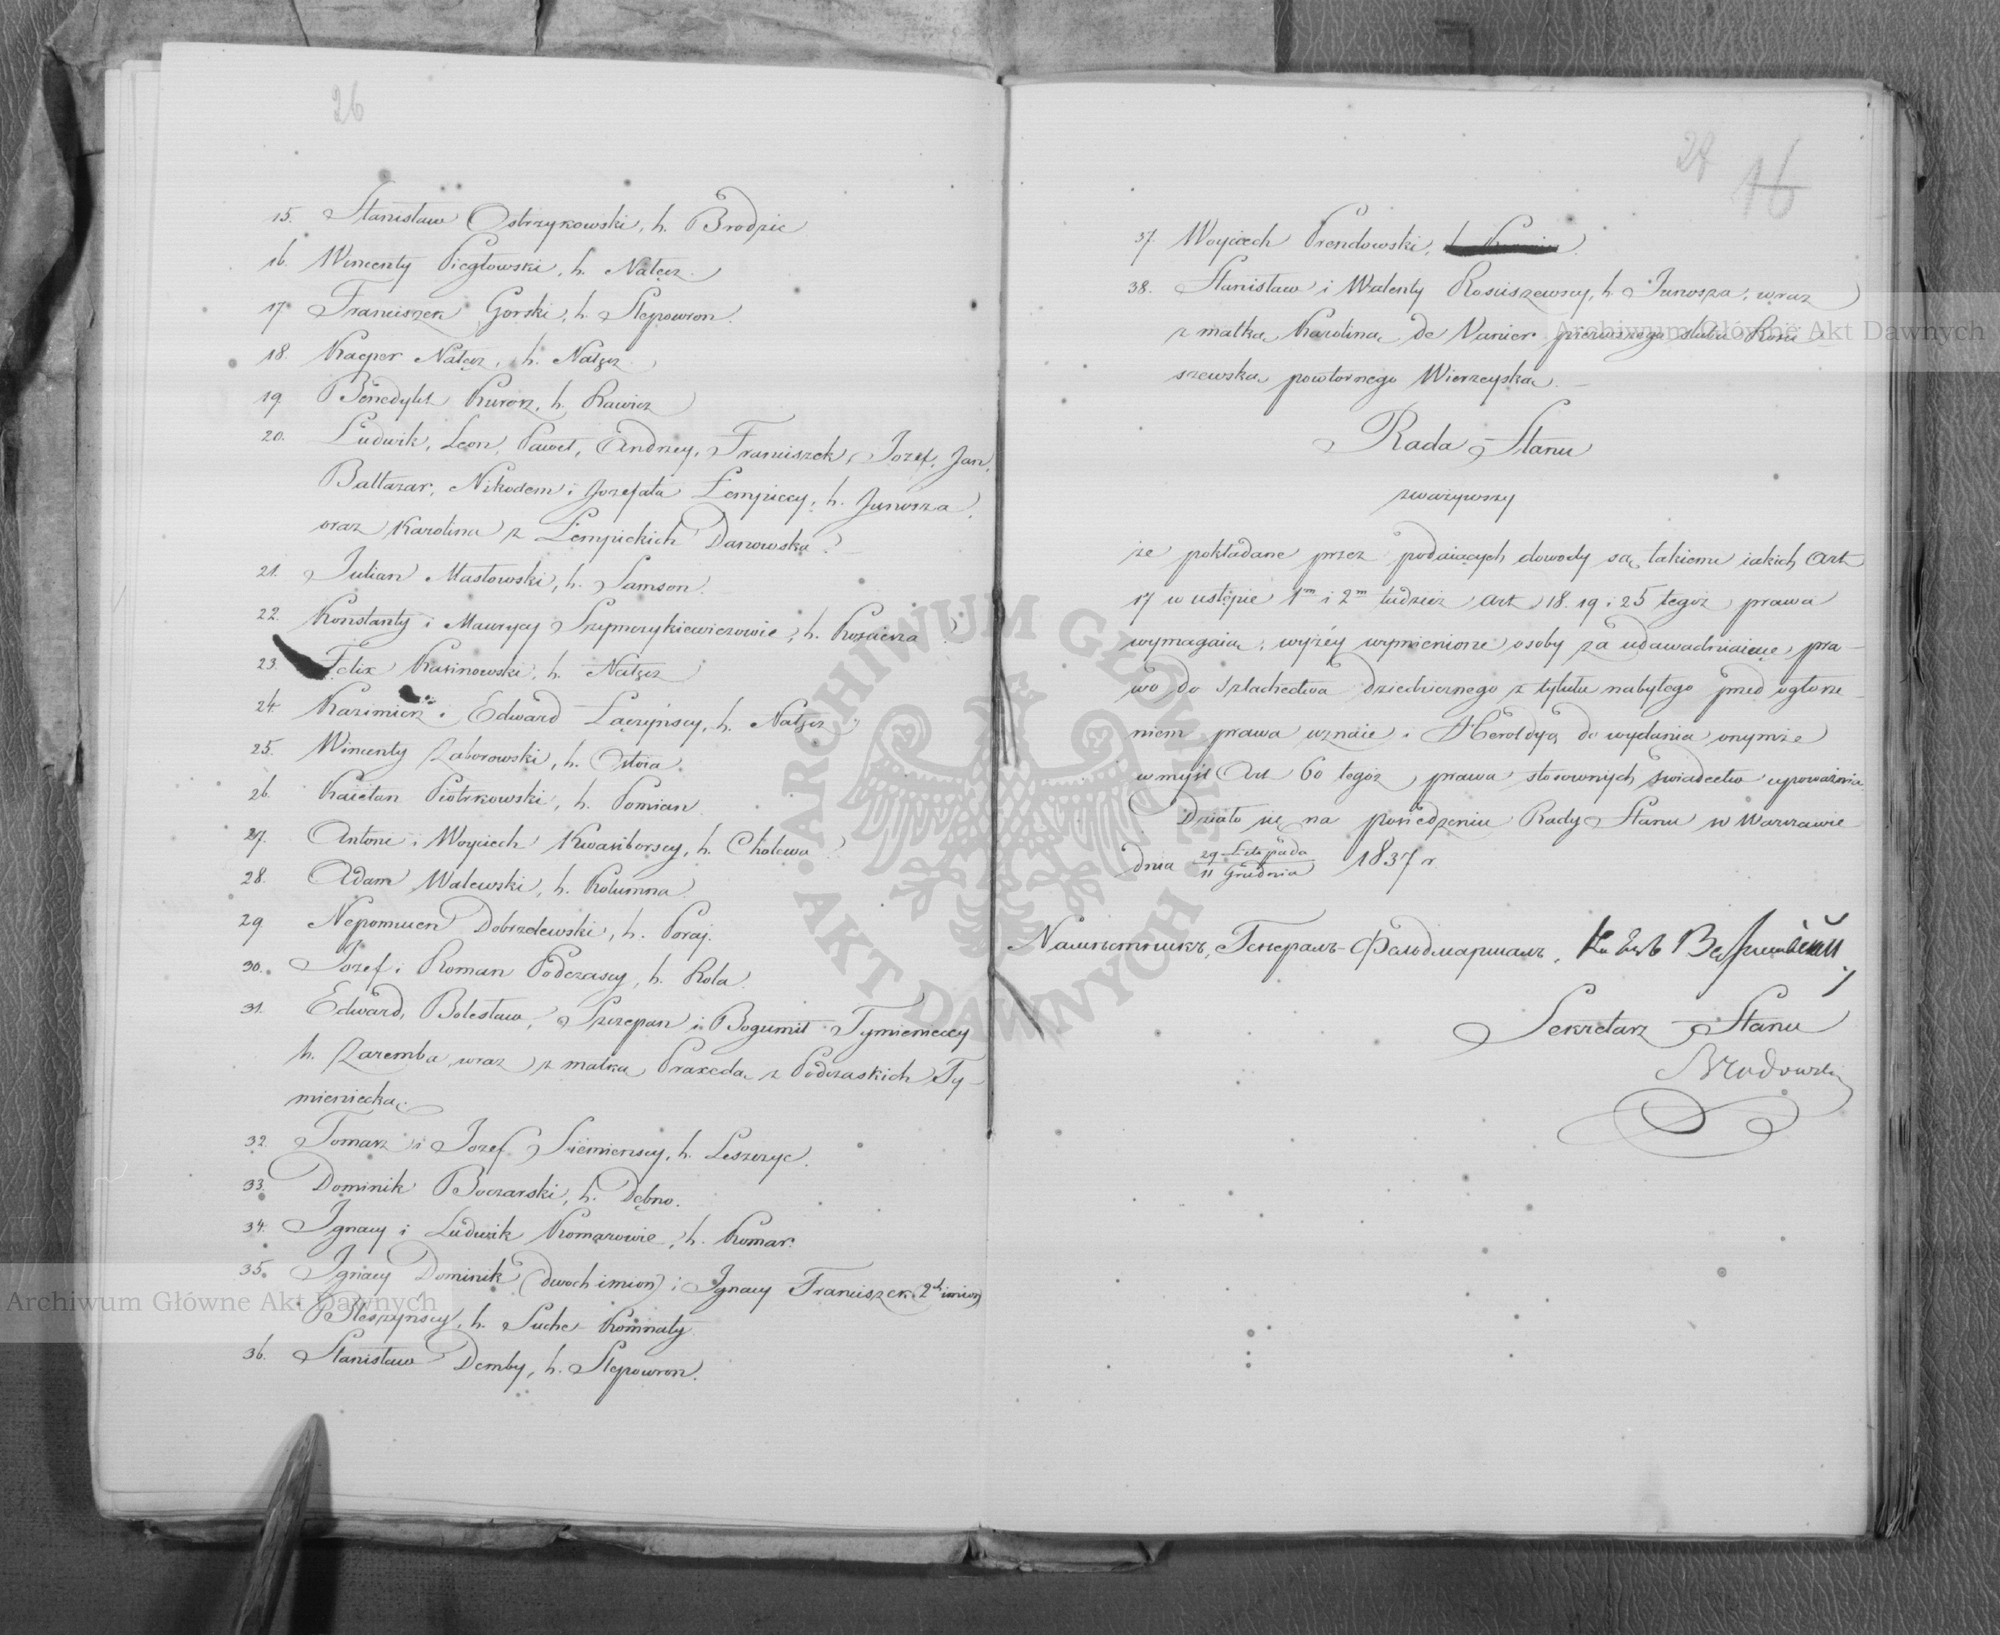 26
15. Stanisław Ostrzykowski, h. Brodzic
16. Wincenty Piegłowski, h. Nałęcz.
17 Franciszek Gorski, h. Slepowron.
18. Kacper Nałęcz, h. Nałęcz.
19 Benedykt Kurosz, h. Rawicz
20. Ludwik, Leon, Paweł, Andrzey, Franciszek, Jozef, Jan,
Baltazar, Nikodem i Jozefata Łempiccy, h. Junosza,
oraz Karolina z Łempickich Danowska.
21. Julian Masłowski, h. Samson.
22. Konstanty i Maurycy Szymczykiewiczowie, h. Kościesza
23. Felix Kasinowski, h. Nałęcz
24. Kazimierz i Edward Łączyńscy, h. Nałęcz
25. Wincenty Zaborowski, h. Ostoia.
26. Kaietan Piotrkowski, h. Pomian.
27. Antoni i Woyciech Kwasiborscy, h. Cholewa.
28. Adam Walewski, h. Kolumna.
29 Nepomucen Dobrzelewski, h. Poraj.
30. Jozef i Roman Podczascy, h. Rola.
31. Edward, Bolesław, Szczepan i Bogumił Tymienieccy
h. Zaremba, wraz z matką Praxedą z Podczaskich Ty-
mieniecką.
32. Tomasz i Jozef Siemienscy, h. Leszczyc.
33. Dominik Boczarski, h. Dębno.
34. Ignacy i Ludwik Komarowie, h. Komar.
35. Ignacy Dominik (dwoch imion) i Ignacy Franciszek (2ch imion)
Pleszyńscy, h. Suche Komnaty.
36. Stanisław Demby, h. Slepowron.
27 16
37. Woyciech Prendowski,
38. Stanisław i Walenty Rosciszewscy, h. Junosza, wraz
z matką Karoliną de Vanier pierwszego ślubu Rosci-
szewską powtornego Wierzeyską.
Rada Stanu
zważywszy
że pokładane przez podaiących dowody są takiemi iakich Art
17 w ustępie 1m i 2m tudzież Art 18. 19 i 25 tegoż prawa
wymagaią, wyżéy wymienione osoby za udawadniaiące pra-
wo do szlachectwa dziedzicznego z tytułu nabytego przed ogłosze-
niem prawa uznaie i Heroldyą do wydania onymże
w myśl Art 60 tegoż prawa stosownych świadectw upoważnia
Działo się na posiedzeniu Rady Stanu w Warszawie
dnia 29 Listopada / 11 Grudnia 1837 r.
Намѣстникъ, Генералъ-Фельдмаршалъ,
Sekretarz Stanu
Archiwum Główne Akt Dawnych
Archiwum Główne Akt Dawnych
ARCHIWUM GŁÓWNE AKT DAWNYCH